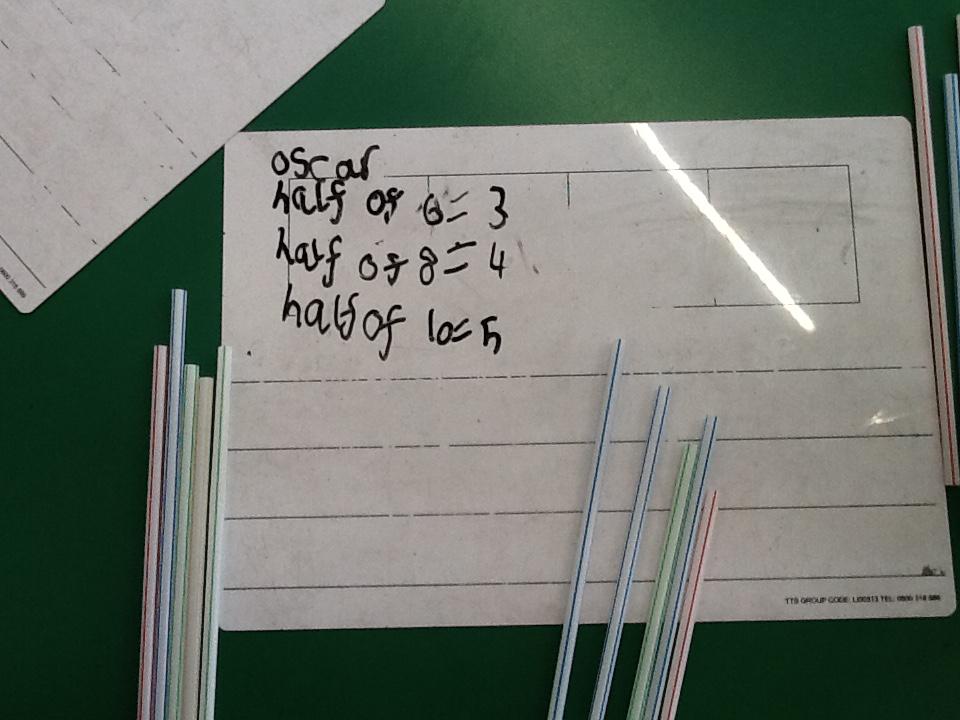 oscar
half of 6= 3
half of 8= 4
half of 10= 5
TTS GROUP CODE: LI00813 TEL: 0800 318 686
0800 318 686